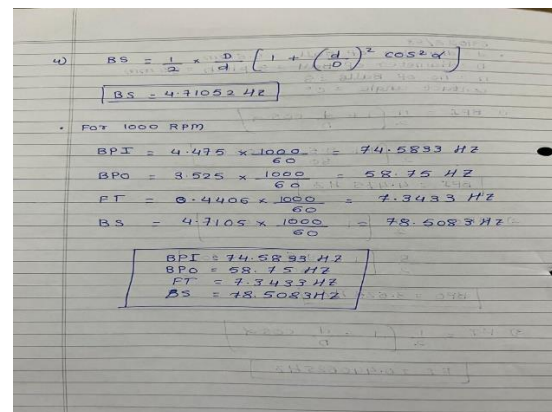 4) BS = 1/2 × D/d [ 1 + (d/D)² cos² α ]
BS = 4.71052 HZ
• For 1000 RPM
BPI = 4.475 × 1000/60 = 74.5833 HZ
BPO = 3.525 × 1000/60 = 58.75 HZ
FT = 0.4406 × 1000/60 = 7.3433 HZ
BS = 4.7105 × 1000/60 = 78.5083 HZ
BPI = 74.5833 HZ
BPO = 58.75 HZ
FT = 7.3433 HZ
BS = 78.5083 HZ